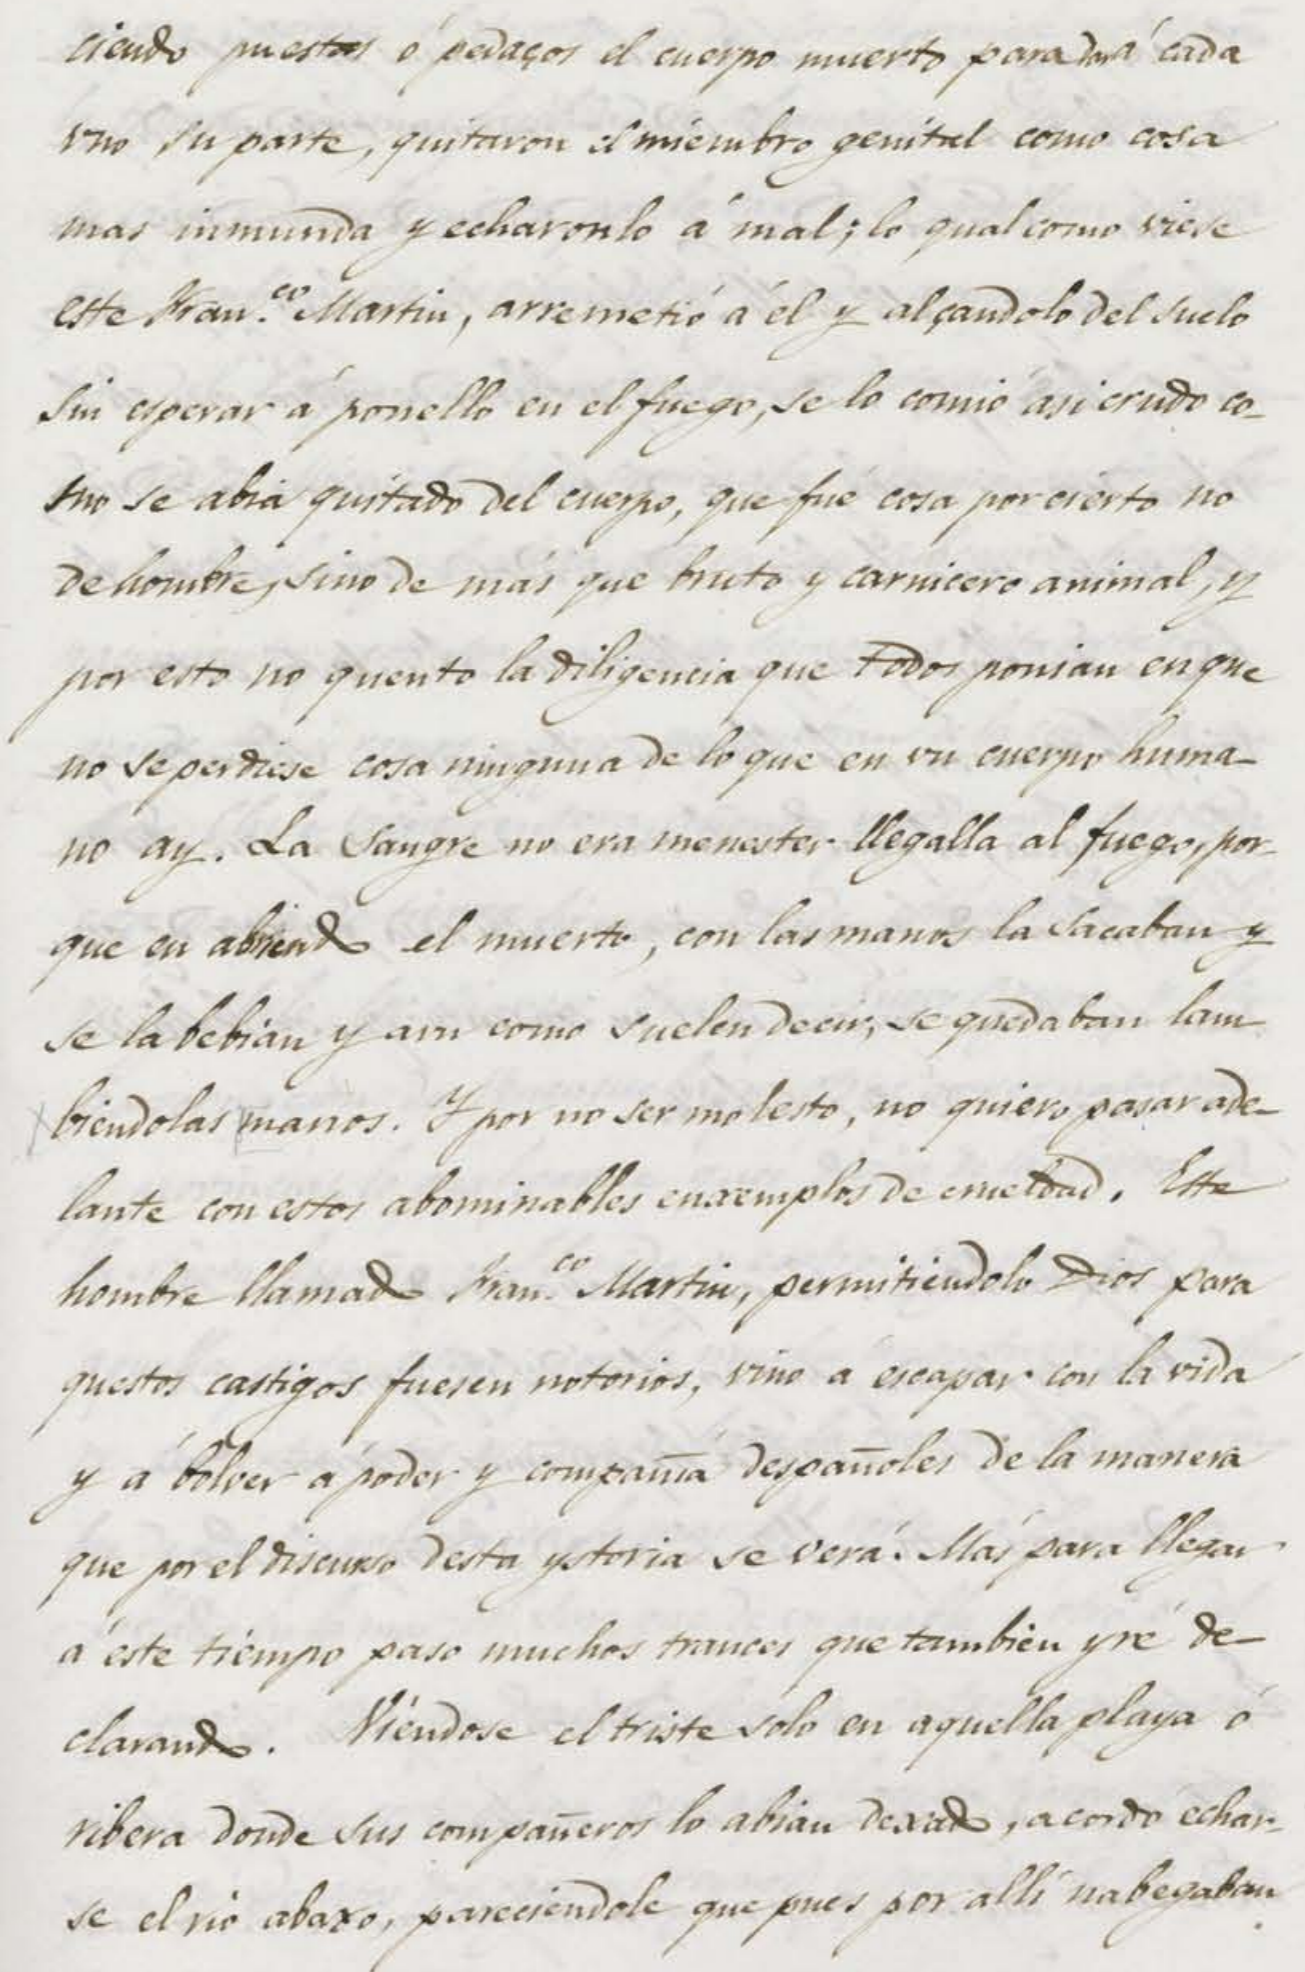 ciendo puestos ó pedaços el cuerpo muerto para dar á cada
vno su parte, quitaron el miembro genital como cosa
mas inmunda y echaronlo á mal; lo qual como viese
este Fran.co Martin, arremetió á él y alçandolo del suelo
sin esperar á ponello en el fuego, se lo comió asi crudo co-
mo se abia quitado del cuerpo, que fué cosa por cierto no
de hombre, sino de más que bruto y carnicero animal, y
por esto no quento la diligencia que todos ponian en que
no se perdiese cosa ninguna de lo que en vn cuerpo huma-
no ay. La sangre no era menester llegalla al fuego, por-
que en abriendo el muerto, con las manos la sacaban y
se la bebian y avn como suelen decir, se quedaban lam
biendolas manos. Y por no ser molesto, no quiero pasar ade-
lante con estos abominables enxemplos de crueldad. Este
hombre llamado Fran.co Martin, permitiendolo Dios para
questos castigos fuesen notorios, vino a escapar con la vida
y á bolver á poder y compañia despañoles de la manera
que por el discurso desta ystoria se verá. Más para llegar
á este tiempo paso muchos trances que tambien yré de-
clarando. Viéndose el triste solo en aquella playa ó
ribera donde sus compañeros lo abian dexado, acordó echar-
se el rio abaxo, pareciendole que pues por allí nabegaban